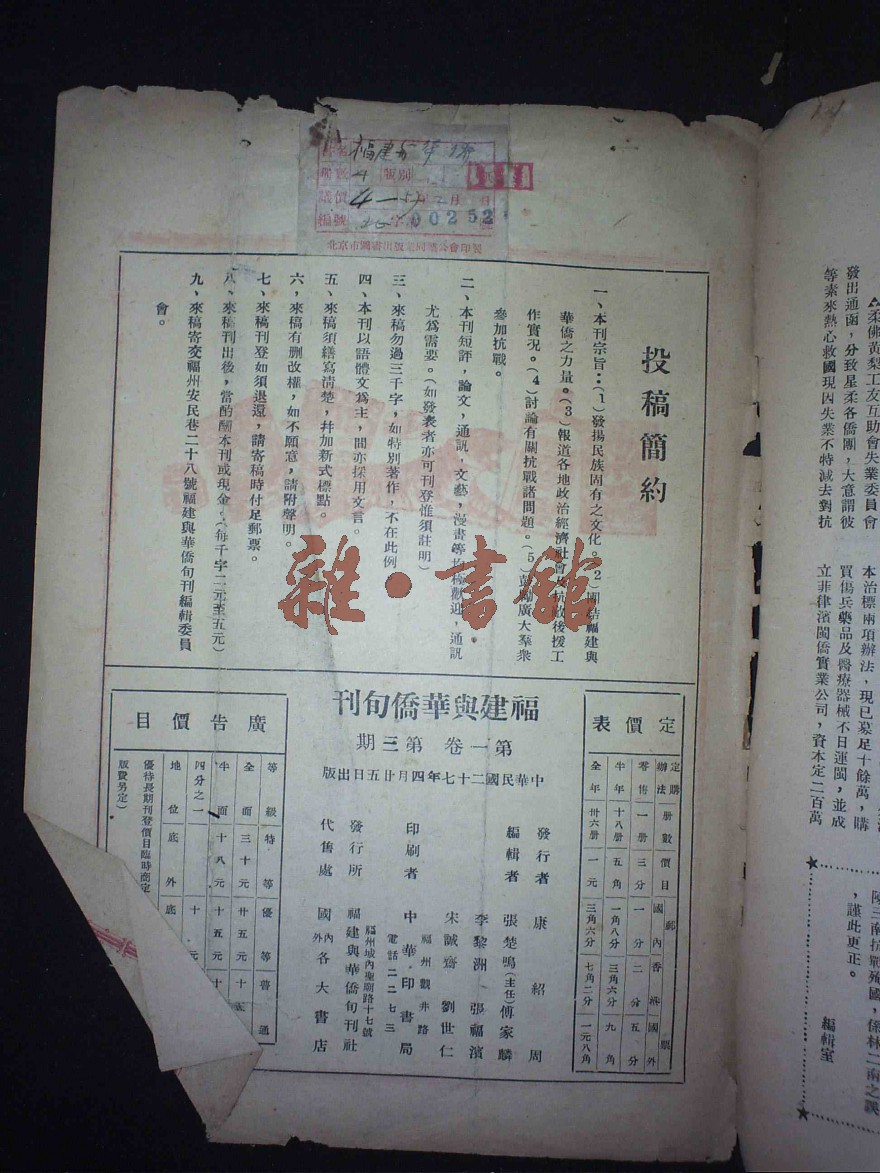 福建與華僑
00252
北京市圖書出版業同業公會印製
投稿簡約
一、本刊宗旨：（1）發揚民族固有之文化。（2）團結福建與
華僑之力量。（3）報道各地政治經濟社會及抗敵後援工
作實况。（4）討論有關抗戰諸問題。（5）鼓勵廣大羣衆
參加抗戰。
二、本刊短評，論文，通訊，文藝，漫畫等均極歡迎，通訊
尤爲需要。（如發表者亦可刊登惟須註明）
三、來稿勿過三千字，如特別著作，不在此例
四、本刊以語體文爲主，間亦採用文言。
五、來稿須繕寫清楚，幷加新式標點。
六，來稿有删改權，如不願意，請附聲明。
七、來稿刊登如須退還，請寄稿時付足郵票。
八、來稿刊出後，當酌酬本刊或現金。（每千字二元至五元）
九、來稿寄交福州安民巷二十八號福建與華僑旬刊編輯委員
會。
雜·書館
福建與華僑旬刊
第一卷 第三期
中華民國二十七年四月廿五日出版
發行者 康紹周
編輯者 張楚鳴（主任） 傅家麟
李黎洲 張福濱
宋誠齋 劉世仁
印刷者 中華印書局
福州觀井路
電話二二七三
發行所 福建與華僑旬刊社
福州城內聖廟路十七號
代售處 國內外各大書店
定價表
定購辦法 册數 價目 郵票 國內 香港 國外
零售 一册 三分 一分 二分 五分
半年 十八册 五角 一角八分 三角六分 九角
全年 卅六册 一元 三角六分 七角二分 一元八角
廣告價目
等級 特等 優等 普通
全面 三十元 廿五元
半面 十八元 十五元
四分之一 十
地位 底外 底
優待長期刊登價目臨時商定
版費另定）
柔佛黃梨工友互助會失業委員會
發出通函，分致星柔各僑團，大意謂彼
等素來熱心救國現因失業不特減去對抗
本治標兩項辦法，現已募足十餘萬，購
買傷兵藥品及醫療器械不日運閩，並成
立菲律濱閩僑實業公司，資本定二百萬
陳三南抗戰殉國，係林二南之誤
，謹此更正。
編輯室